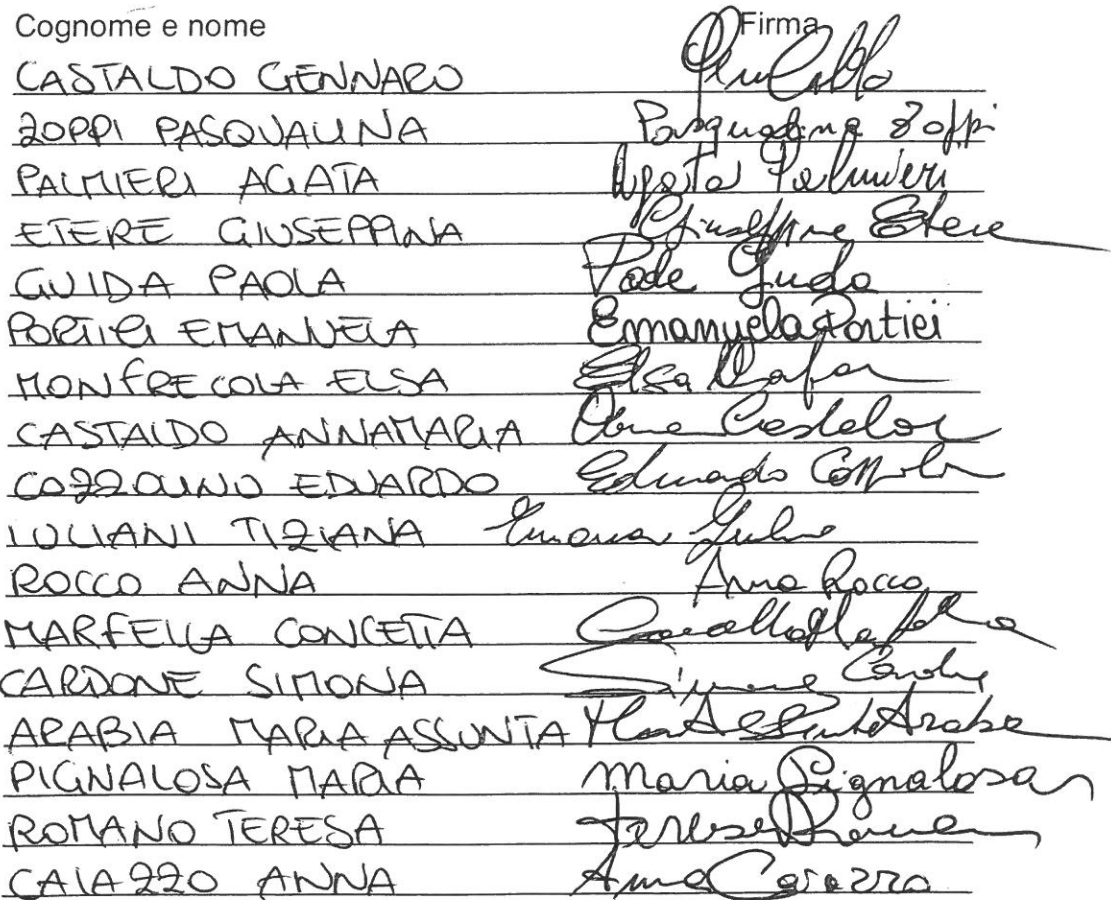 Cognome e nome Firma
CASTALDO GENNARO
ZOPPI PASQUALINA Pasqualina Zoppi
PALMIERI AGATA Agata Palmieri
ETERE GIUSEPPINA Giuseppina Etere
GUIDA PAOLA Paola Guida
PORTICI EMANUELA Emanuela Portici
MONFRECOLA ELSA Elsa
CASTALDO ANNAMARIA Anna Castaldo
COZZOLINO EDUARDO Eduardo
IULIANI TIZIANA
ROCCO ANNA Anna Rocco
MARFELLA CONCETTA
CARDONE SIMONA Simona Cardone
ARABIA MARIA ASSUNTA Arabia
PIGNALOSA MARIA Maria Pignalosa
ROMANO TERESA Teresa Romano
CAIAZZO ANNA Anna Caiazzo